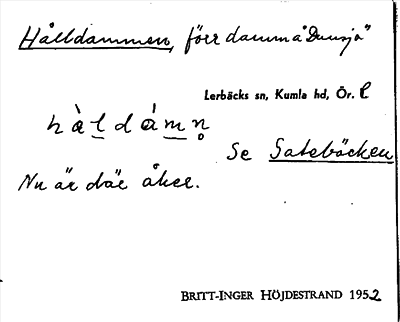 Hålldammen, förr damm å Dunsjö
Lerbäcks sn, Kumla hd, Ör. l
hàldámn̥
Se Satebäcken
Nu är där åker.
BRITT-INGER HÖJDESTRAND 1952